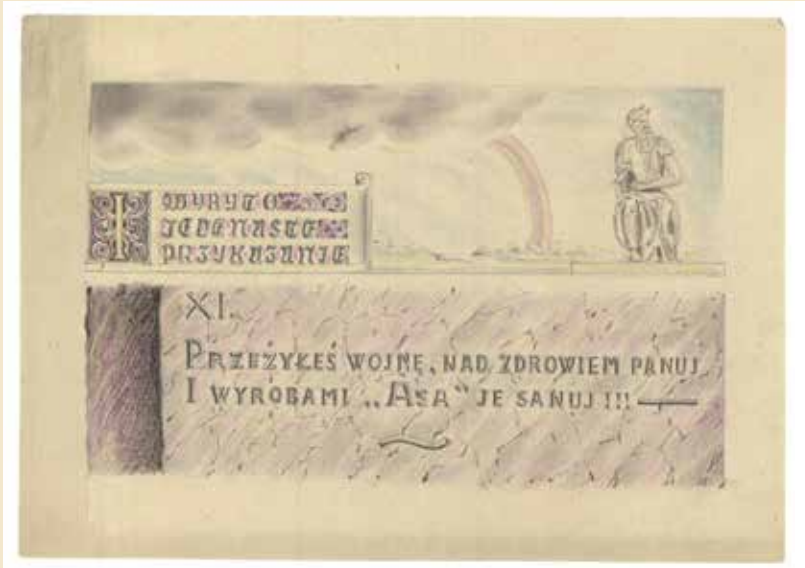 I WYRYTO
JEDENASTE
PRZYKAZANIE
XI.
PRZEŻYŁEŚ WOJNĘ, NAD ZDROWIEM PANUJ
I WYROBAMI „ASA” JE SANUJ !!!